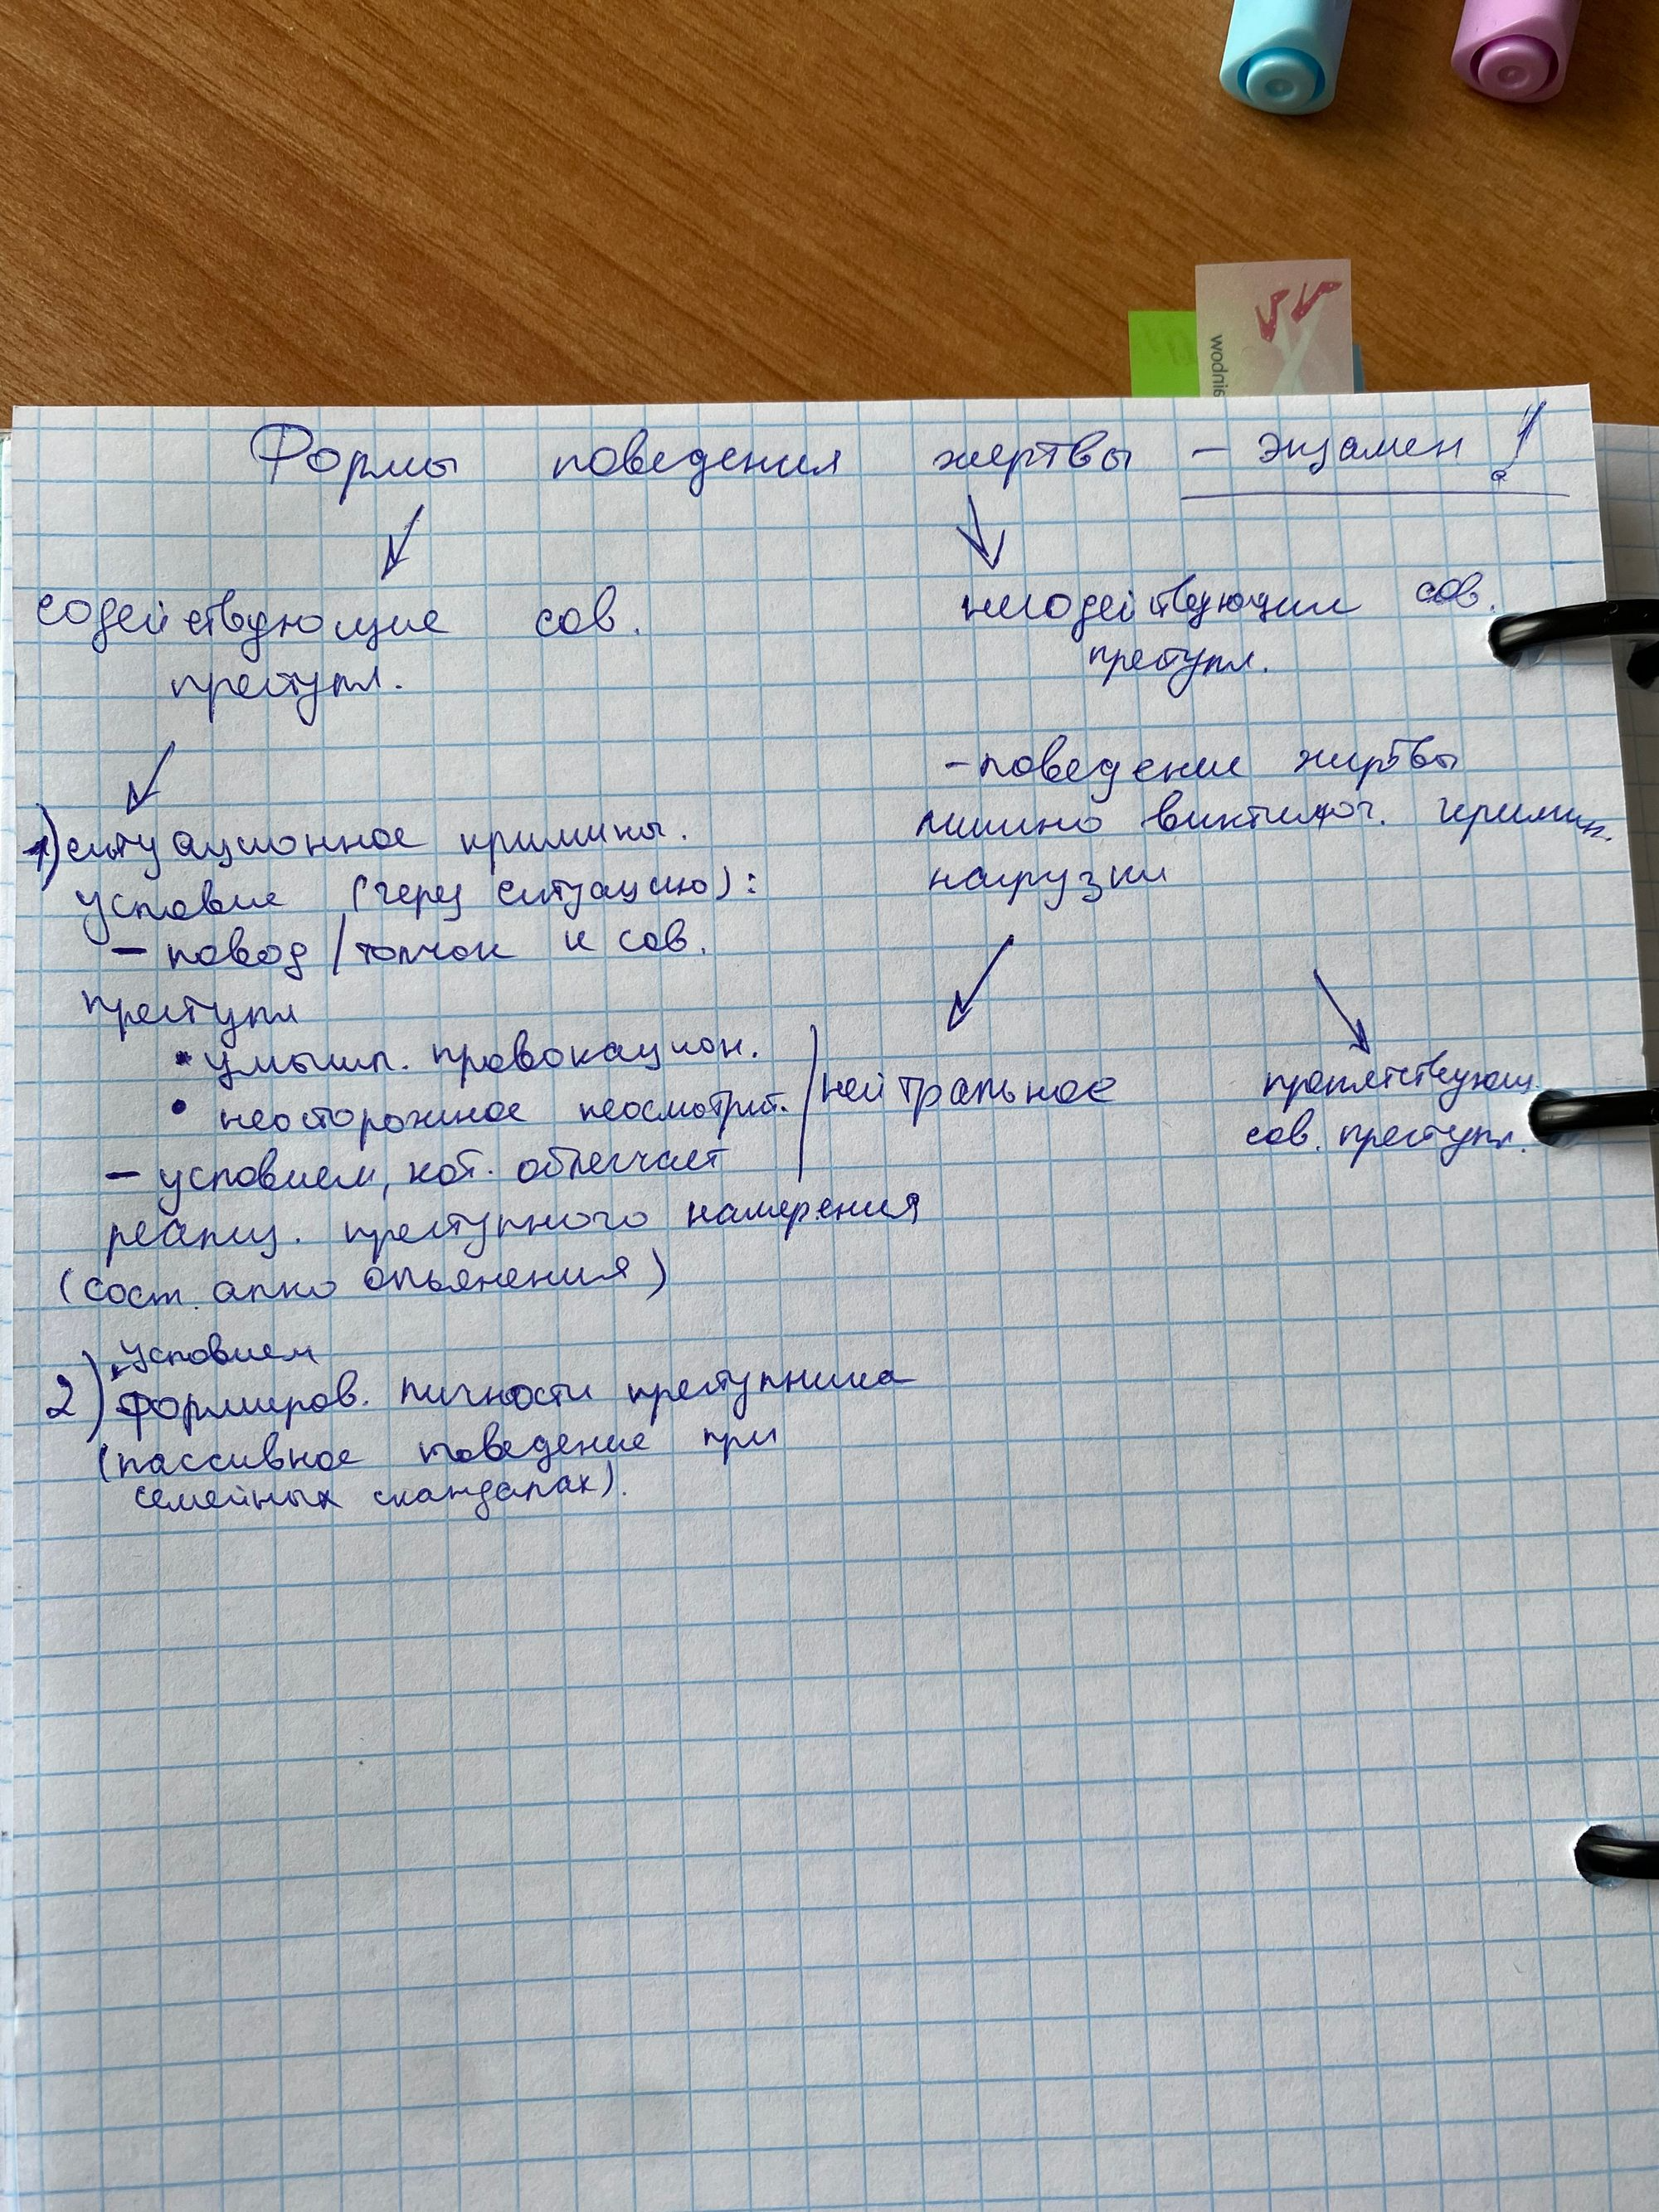 wodnie
Формы поведения жертвы – экзамен!
содействующие сов.
преступл.
1) ситуационное кримины.
условие (через ситуацию):
– повод / толчок к сов.
преступл
• умышл. провокацион.
• неосторожное неосмотрит.
– условием, кот. облегчает
реализ. преступного намерения
(сост. алко опьянения)
2) условием
формиров. личности преступника
(пассивное поведение при
семейных скандалах).
несодействующие сов.
преступл.
– поведение жертвы
лишено виктимог. кримин.
нагрузки
нейтральное
препятствующ.
сов. преступл.